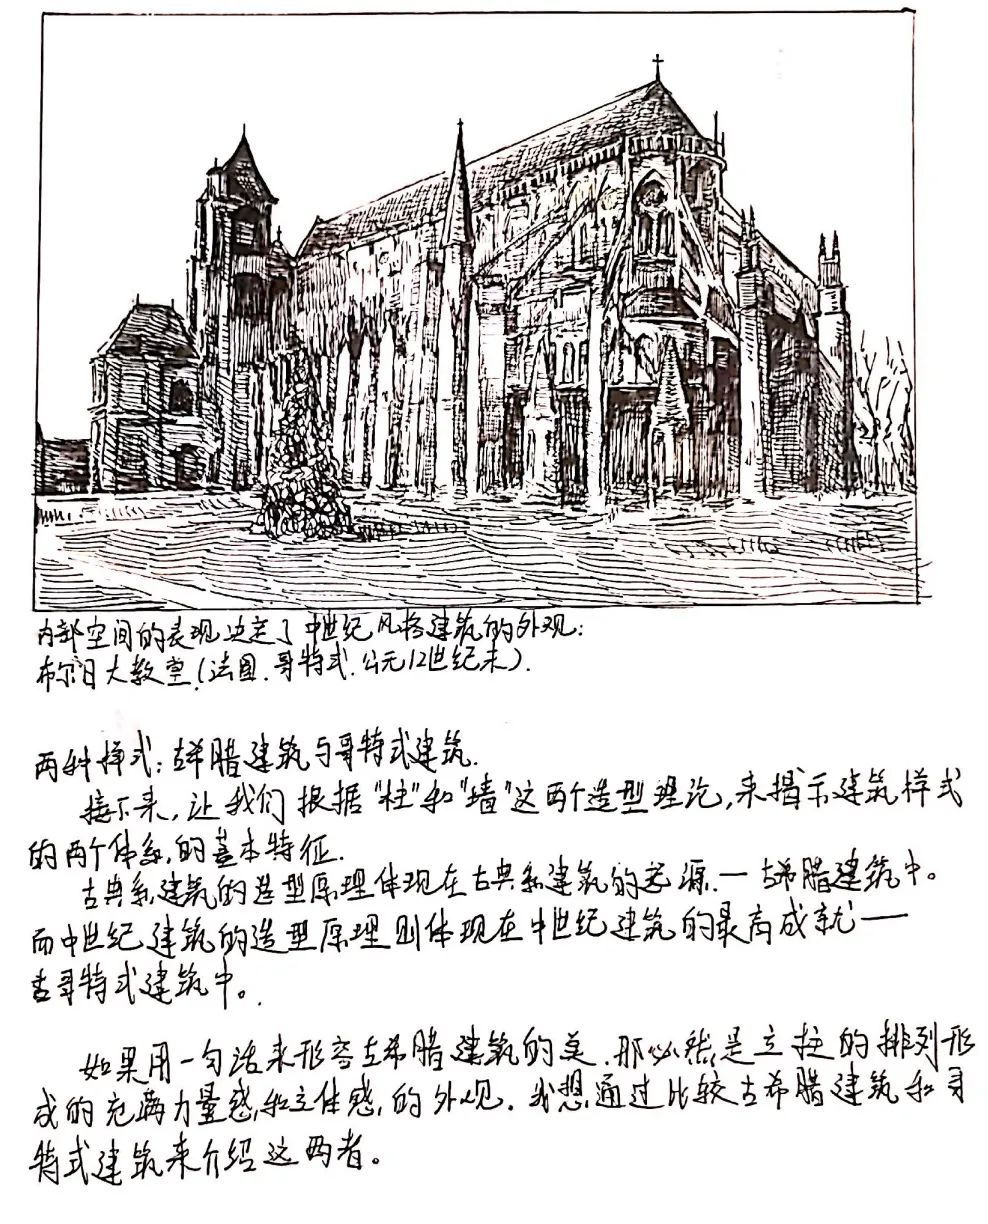 内部空间的表现决定了中世纪风格建筑的外观:
布尔日大教堂.(法国.哥特式.公元12世纪末).
两种样式:古希腊建筑与哥特式建筑.
接下来,让我们根据"柱"和"墙"这两个造型理论,来揭示建筑样式
的两个体系,的基本特征.
古典系建筑的造型原理体现在古典系建筑的起源.一古希腊建筑中。
而中世纪建筑的造型原理则体现在中世纪建筑的最高成就——
古哥特式建筑中。
如果用一句话来形容古希腊建筑的美.那必然是立柱的排列形
成的充满力量感,和立体感,的外观.我想通过比较古希腊建筑和哥
特式建筑来介绍这两者。